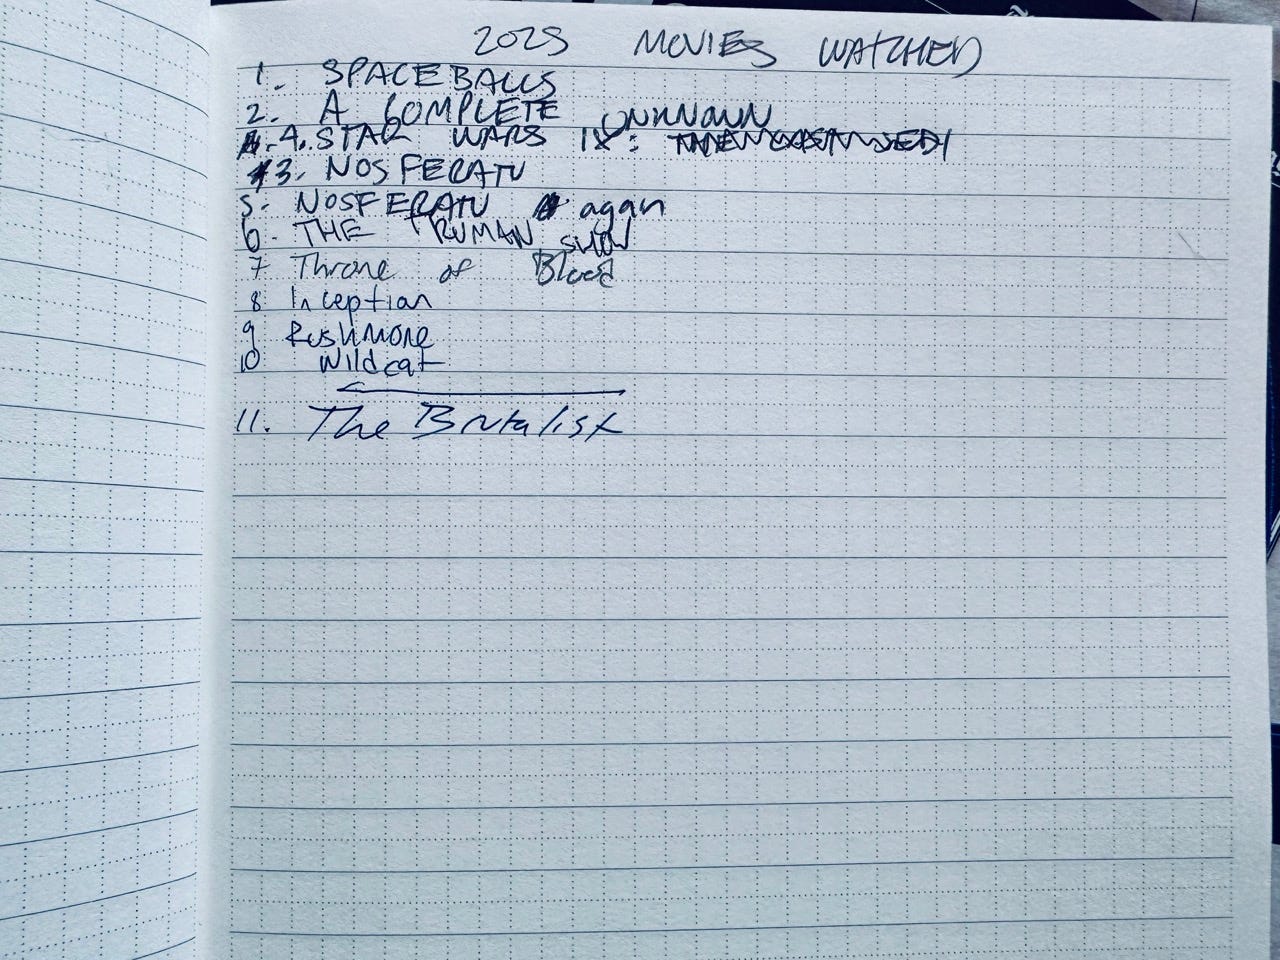 2025 MOVIES WATCHED
1. SPACEBALLS
2. A COMPLETE UNKNOWN
4. STAR WARS IX:
3. NOSFERATU
5. NOSFERATU again
6. THE TRUMAN SHOW
7 Throne of Blood
8 Inception
9 Rushmore
10 Wildcat
11. The Brutalist